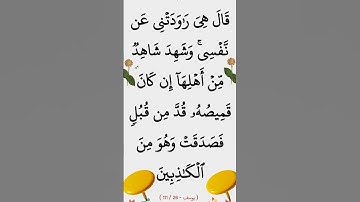 قَالَ هِىَ رَٰوَدَتْنِى عَن
نَّفْسِى ۚ وَشَهِدَ شَاهِدٌ
مِّنْ أَهْلِهَآ إِن كَانَ
قَمِيصُهُۥ قُدَّ مِن قُبُلٍ
فَصَدَقَتْ وَهُوَ مِنَ
ٱلْكَٰذِبِينَ
( يوسف - 26 / 111 )